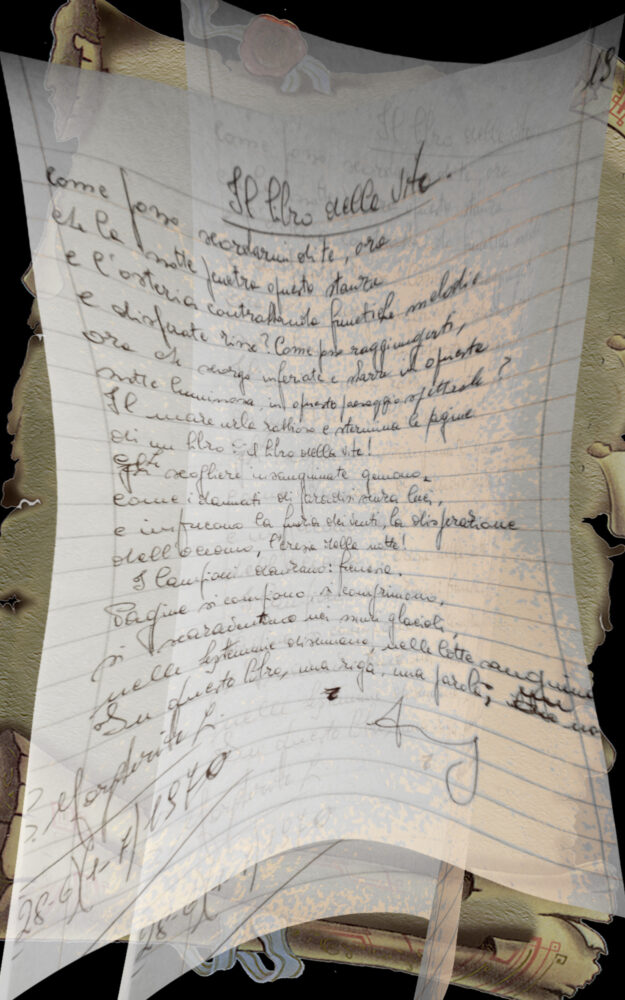 19
Il libro della vita
Come posso scordarmi di te, ora
che la notte penetra questa stanza
e l'osteria contrabbanda frenetiche melodie
e disperate risse? Come posso raggiungerti,
ora che scorgo inferiate e sbarre in questa
notte luminosa, in questo paesaggio spettrale?
Il mare urla rabbioso e stermina le pagine
di un libro: il libro della vita!
scogliere insanguinate gemono,
come i dannati di paradisi senza luci,
e infuocano la furia dei venti, la disperazione
dell'oceano, l'eresia della notte!
I lampioni danzano:
Pagine si compiono, si comprimono,
si scaraventano nei muri glaciali,
nelle bestemmie disumane, nelle lotte sanguin
Su questo libro, una riga, una parola; un no
? Margherita L.
28-6(1-7)1970